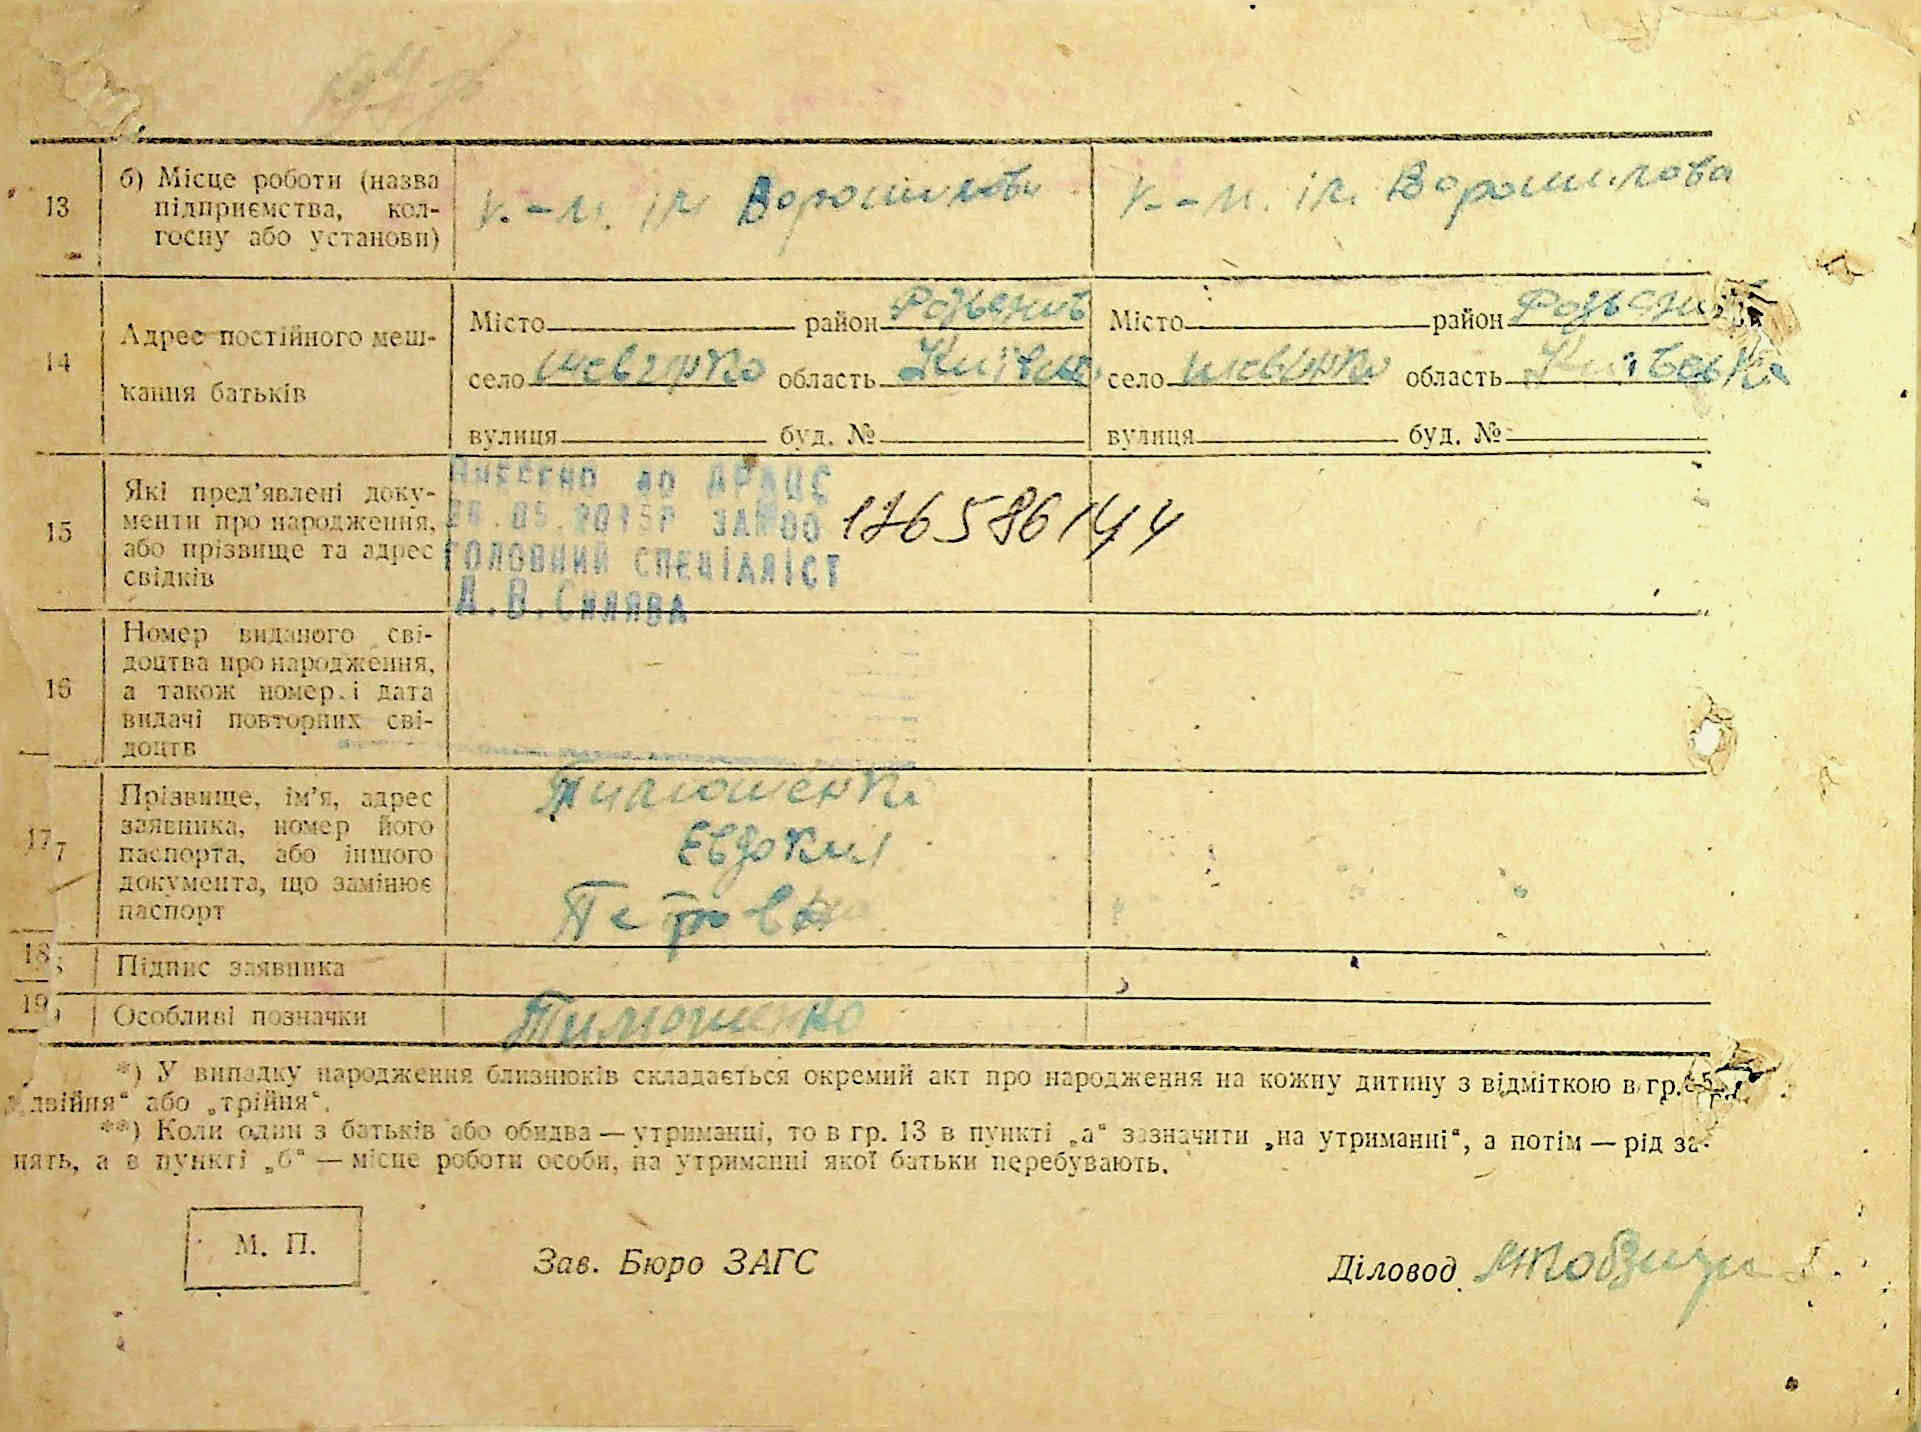 13 б) Місце роботи (назва
підприємства, кол-
госпу або установи)
к.-п. ім. Ворошилова к.-п. ім. Ворошилова
14 Адрес постійного меш-
кання батьків
Місто район Місто район
село Шевченко область Київськ село область Київська
вулиця буд. № вулиця буд. №
15 Які пред’явлені доку-
менти про народження,
або прізвище та адрес
свідків
Внесено до ДРАЦС
05.2015Р ЗА №00 126586144
ГОЛОВНИЙ СПЕЦІАЛІСТ
16 Номер виданого сві-
доцтва про народження,
а також номер і дата
видачі повторних сві-
доцтв
17 Прізвище, ім’я, адрес
заявника, номер його
паспорта, або іншого
документа, що замінює
паспорт
Тимошенко
Евдокия
Петровна
18 Підпис заявника
19 Особливі позначки
Тимошенко
*) У випадку народження близнюків складається окремий акт про народження на кожну дитину з відміткою в гр.
„двійня“ або „трійня“.
**) Коли один з батьків або обидва — утриманці, то в гр. 13 в пункті „а“ зазначити „на утриманні“, а потім — рід за-
нять, а в пункті „б“ — місце роботи особи, на утриманні якої батьки перебувають.
М. П.
Зав. Бюро ЗАГС Діловод